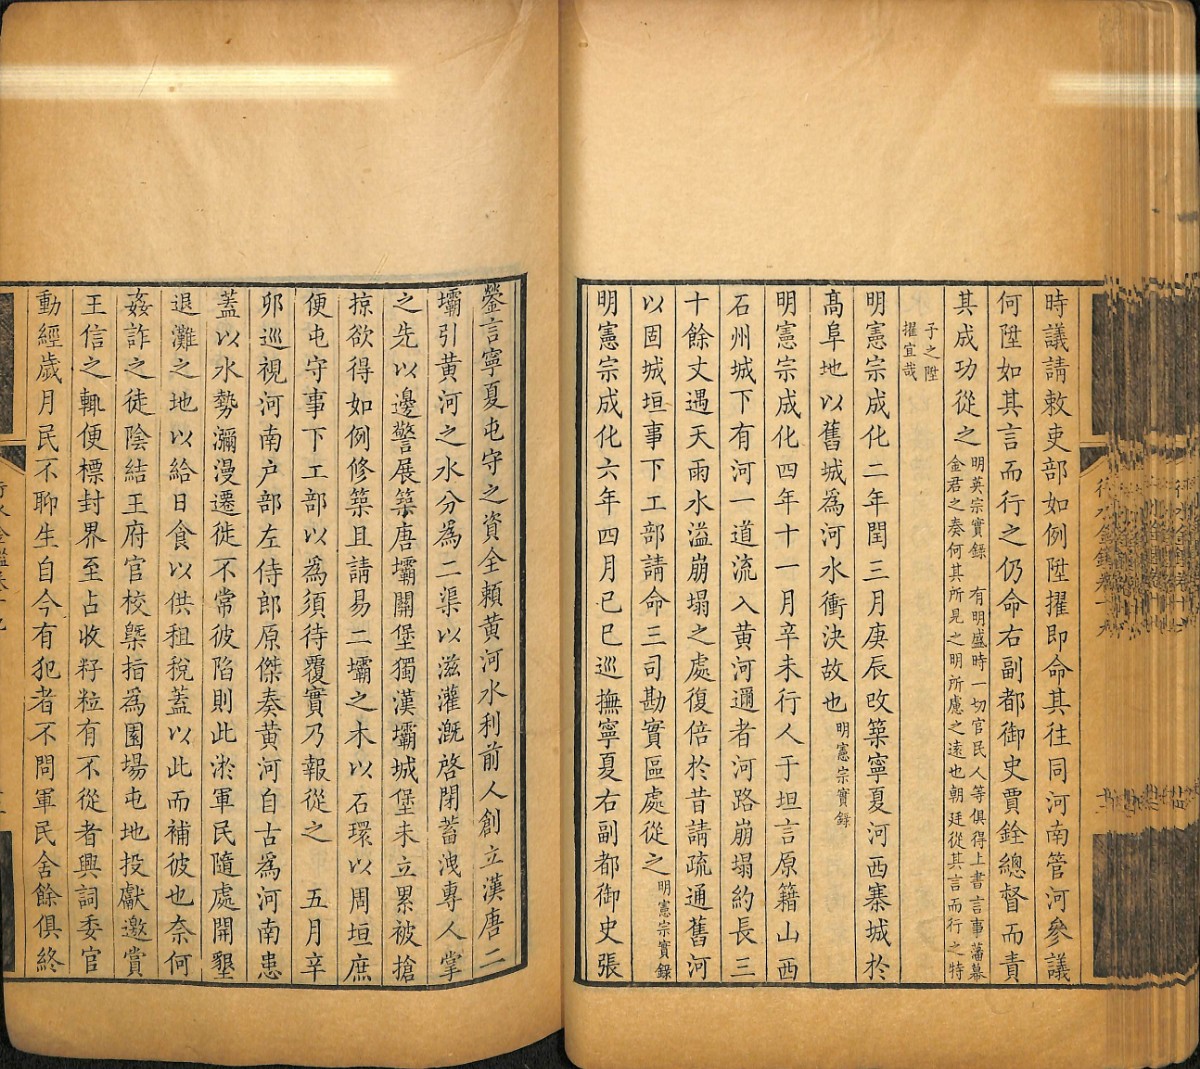 時議請敕吏部如例陞擢即命其往同河南管河參議
何陞如其言而行之仍命右副都御史賈銓總督而責
其成功從之
明英宗實錄　有明盛時一切官民人等俱得上書言事藩幕
金君之奏何其所見之明所慮之遠也朝廷從其言而行之特
予之陞
擢宜哉
明憲宗成化二年閏三月庚辰改築寧夏河西寨城於
高阜地以舊城為河水衝決故也明憲宗實錄
明憲宗成化四年十一月辛未行人于坦言原籍山西
石州城下有河一道流入黃河邇者河路崩塌約長三
十餘丈遇天雨水溢崩塌之處復倍於昔請疏通舊河
以固城垣事下工部請命三司勘實區處從之明憲宗實錄
明憲宗成化六年四月己巳巡撫寧夏右副都御史張
鎣言寧夏屯守之資全賴黃河水利前人創立漢唐二
壩引黃河之水分為二渠以滋灌溉啓閉蓄洩專人掌
之先以邊警展築唐壩關堡獨漢壩城堡未立累被搶
掠欲得如例修築且請易二壩之木以石環以周垣庶
便屯守事下工部以為須待覆實乃報從之　五月辛
卯巡視河南户部左侍郎原傑奏黃河自古為河南患
蓋以水勢瀰漫遷徙不常彼陷則此淤軍民隨處開墾
退灘之地以給日食以供租稅蓋以此而補彼也奈何
姦詐之徒陰結王府官校槩指為園場屯地投獻邀賞
王信之輒便標封界至占收籽粒有不從者興詞委官
動經歲月民不聊生自今有犯者不問軍民舍餘俱終